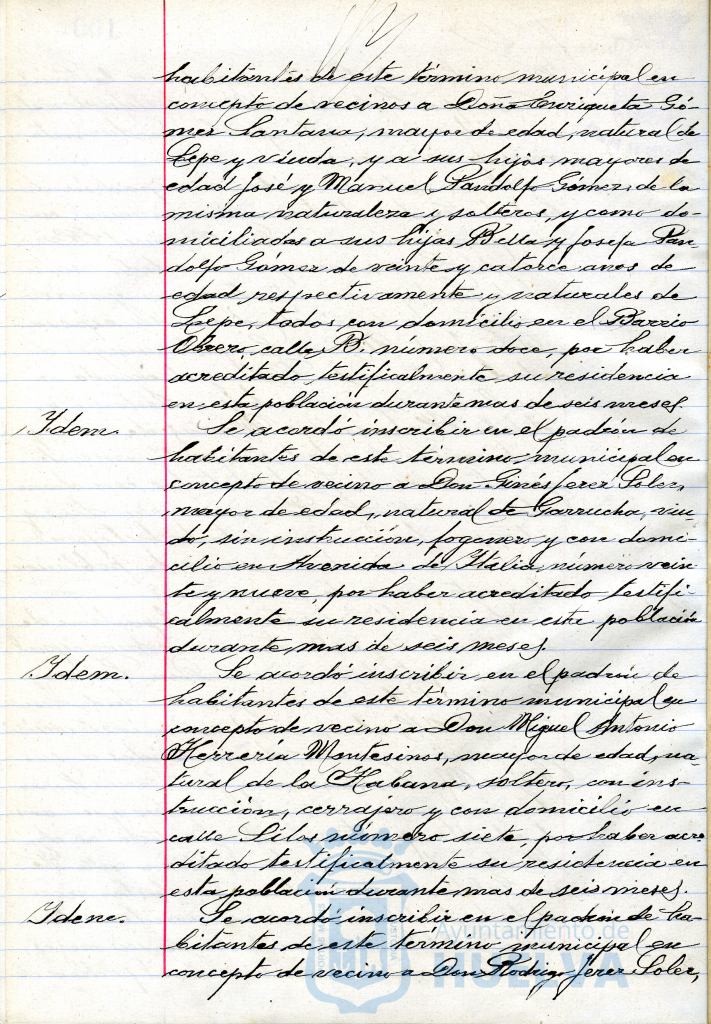 habitantes de este término municipal en
concepto de vecinos a Doña Enriqueta Gó-
mez Santana, mayor de edad, natural de
Lepe y viuda, y a sus hijos mayores de
edad José y Manuel Pandolfo Gómez, de la
misma naturaleza y solteros, y como do-
miciliadas a sus hijas Bella y Josefa Pan
dolfo Gómez de veinte y catorce anos de
edad respectivamente y naturales de
Lepe, todos con domicilio en el Barrio
Obrero, calle B. número doce, por haber
acreditado testificalmente su residencia
en esta población durante mas de seis meses.
Idem. Se acordó inscribir en el padrón de
habitantes de este término municipal en
concepto de vecino a Don Ginés Jerez Soler,
mayor de edad, natural de Garrucha, viu-
do, sin instrucción, fogonero y con domi-
cilio en Avenida de Italia, número vein
te y nueve, por haber acreditado testifi-
calmente su residencia en esta población
durante mas de seis meses.
Idem. Se acordó inscribir en el padrón de
habitantes de este término municipal en
concepto de vecino a Don Miguel Antonio
Herrería Montesinos, mayor de edad, na-
tural de la Habana, soltero, con ins-
trucción, cerrajero y con domicilio en
calle Silos número siete, por haber acre-
ditado testificalmente su residencia en
esta población durante mas de seis meses.
Idem. Se acordó inscribir en el padrón de ha-
bitantes de este término municipal en
concepto de vecino a Don Rodrigo Jerez Soler,
Ayuntamiento de
HUELVA